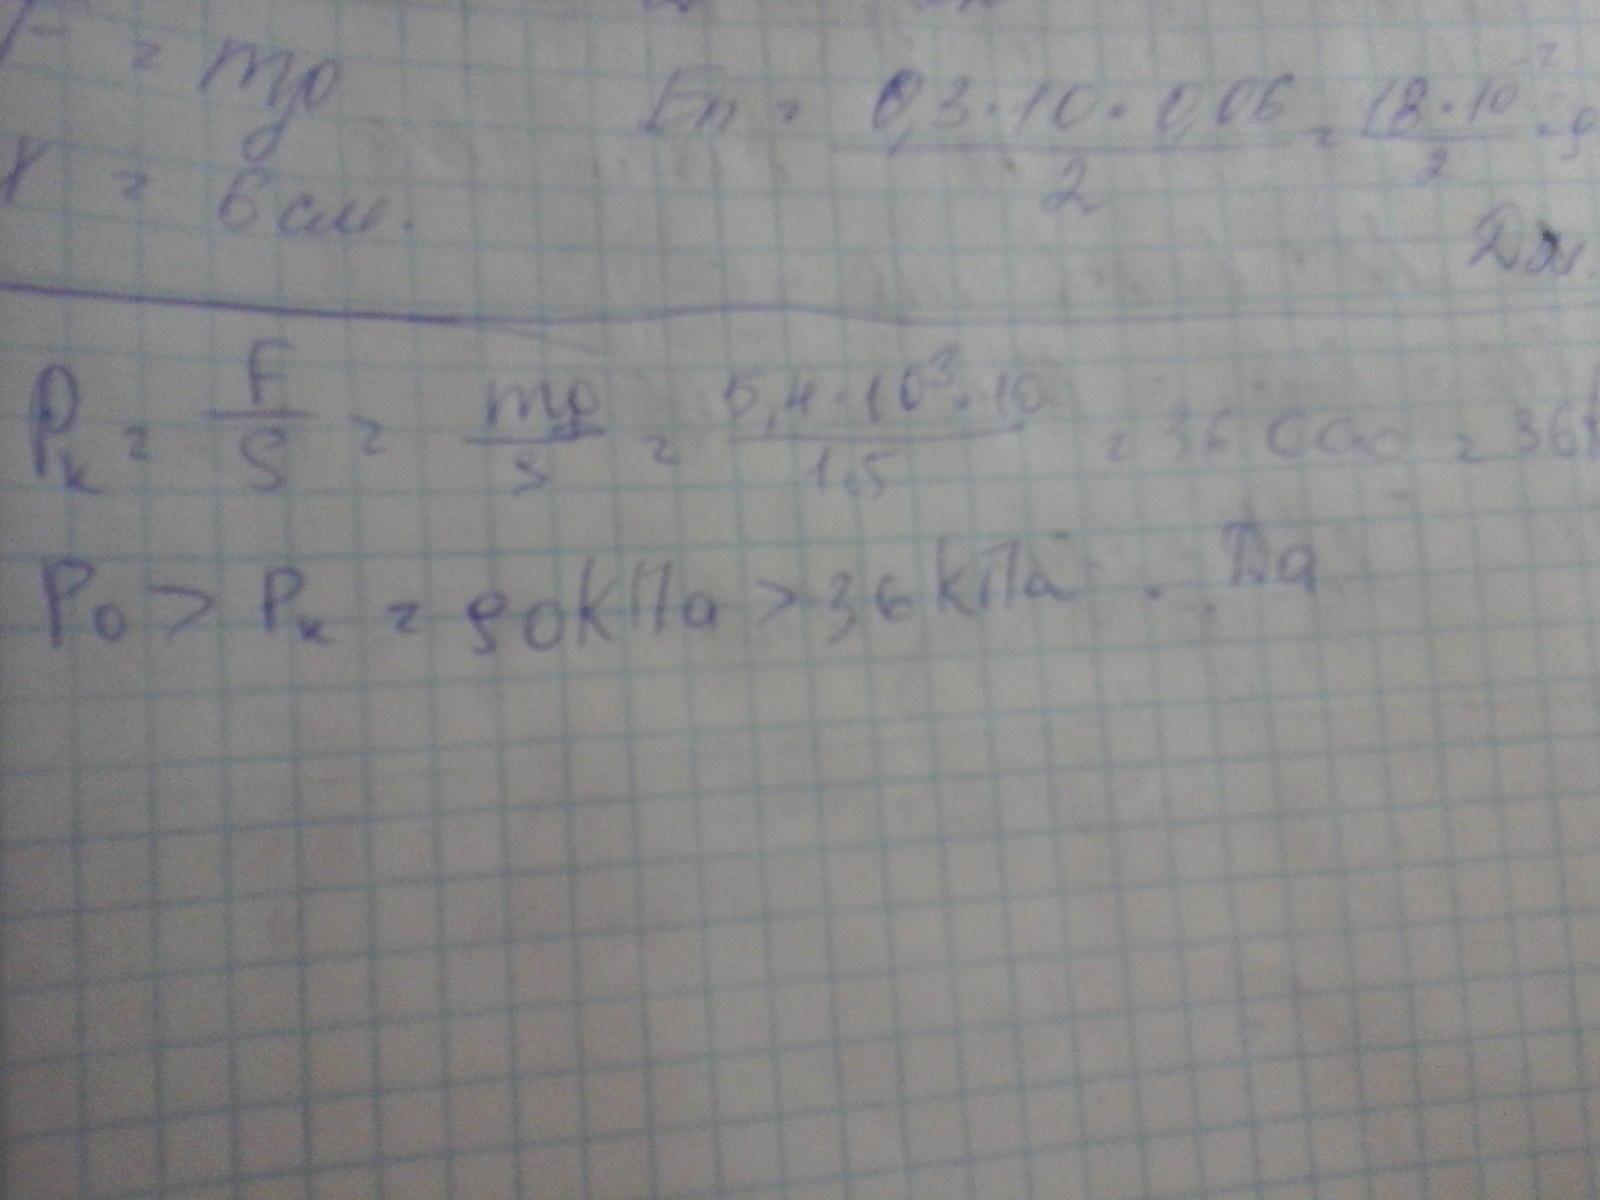 = mg
Eп = 0,3·10·0,06 / 2 = 18·10⁻² / 2 = 9
= 6 см.
Дж.
Pк = F/S = mg/S = 5,4·10³·10 / 1,5 = 36 000 = 36
P0 > Pк = 90кПа > 36кПа. Да